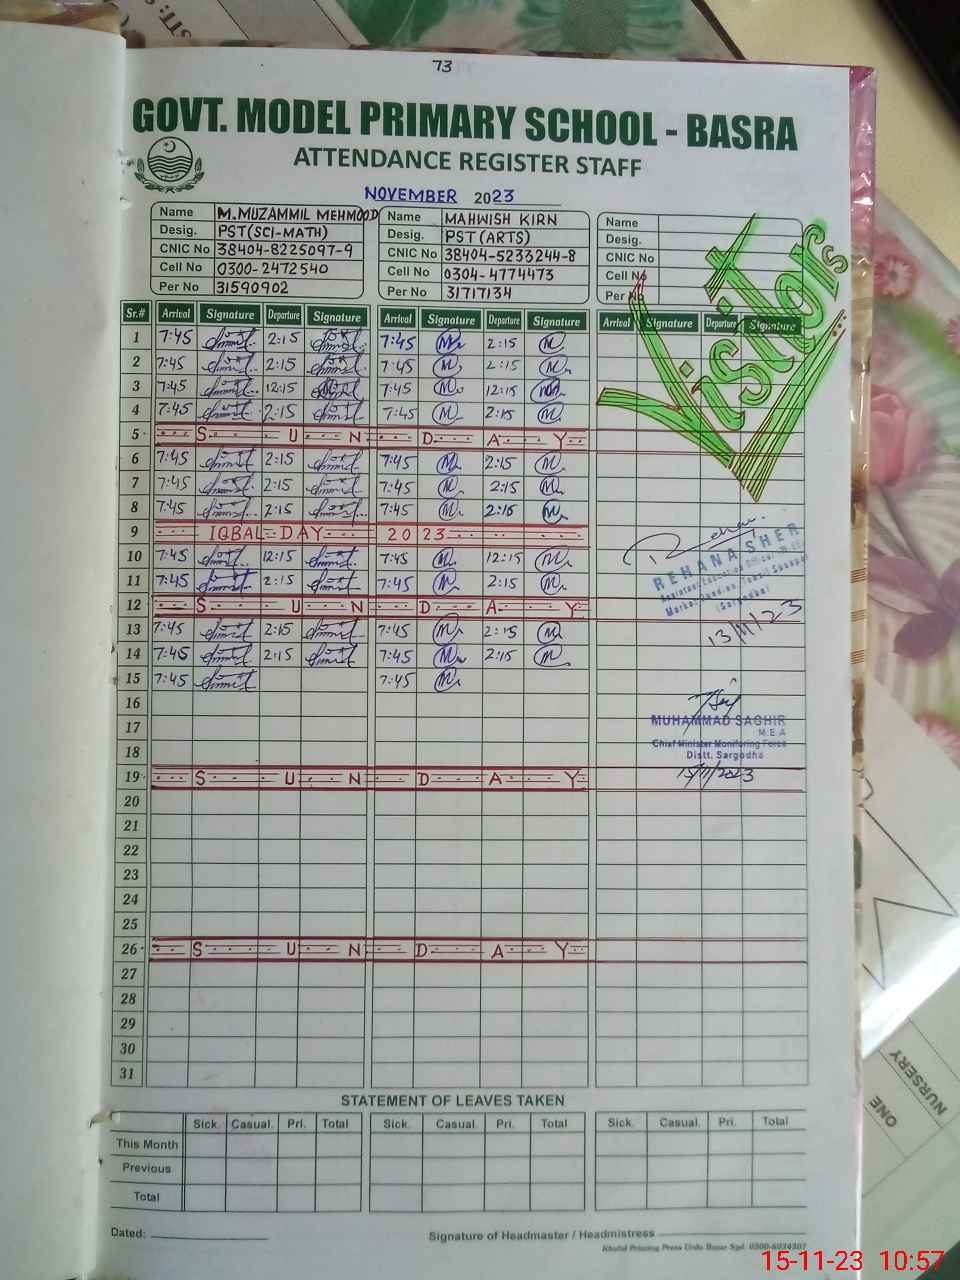 73
GOVT. MODEL PRIMARY SCHOOL - BASRA
ATTENDANCE REGISTER STAFF
NOVEMBER 2023
Name M.MUZAMMIL MEHMOOD
Desig. PST(SCI-MATH)
CNIC No 38404-8225097-9
Cell No 0300-2472540
Per No 31590902
Name MAHWISH KIRN
Desig. PST(ARTS)
CNIC No 38404-5233244-8
Cell No 0304-4774473
Per No 31717134
Name
Desig.
CNIC No
Cell No
Per No
Visitors
Sr.# Arrival Signature Departure Signature Arrival Signature Departure Signature Arrival Signature Departure Signature
1 7:45 2:15 7:45 2:15
2 7:45 2:15 7:45 2:15
3 7:45 12:15 7:45 12:15
4 7:45 2:15 7:45 2:15
5 S U N D A Y
6 7:45 2:15 7:45 2:15
7 7:45 2:15 7:45 2:15
8 7:45 2:15 7:45 2:15
9 IQBAL DAY 2023
10 7:45 12:15 7:45 12:15
11 7:45 2:15 7:45 2:15
12 S U N D A Y
13 7:45 2:15 7:45 2:15
14 7:45 2:15 7:45 2:15
15 7:45 7:45
16
17
18
19 S U N D A Y
20
21
22
23
24
25
26 S U N D A Y
27
28
29
30
31
REHANA SHER
(Sargodha)
13/11/23
MUHAMMAD SAGHIR
MEA
Chief Minister Monitoring Force
Distt. Sargodha
15/11/2023
STATEMENT OF LEAVES TAKEN
Sick. Casual. Pri. Total Sick. Casual. Pri. Total Sick. Casual. Pri. Total
This Month
Previous
Total
Dated:
Signature of Headmaster / Headmistress
Khalid Printing Press Urdu Bazar Sgd. 0300-6034307
NURSERY
ONE
15-11-23 10:57